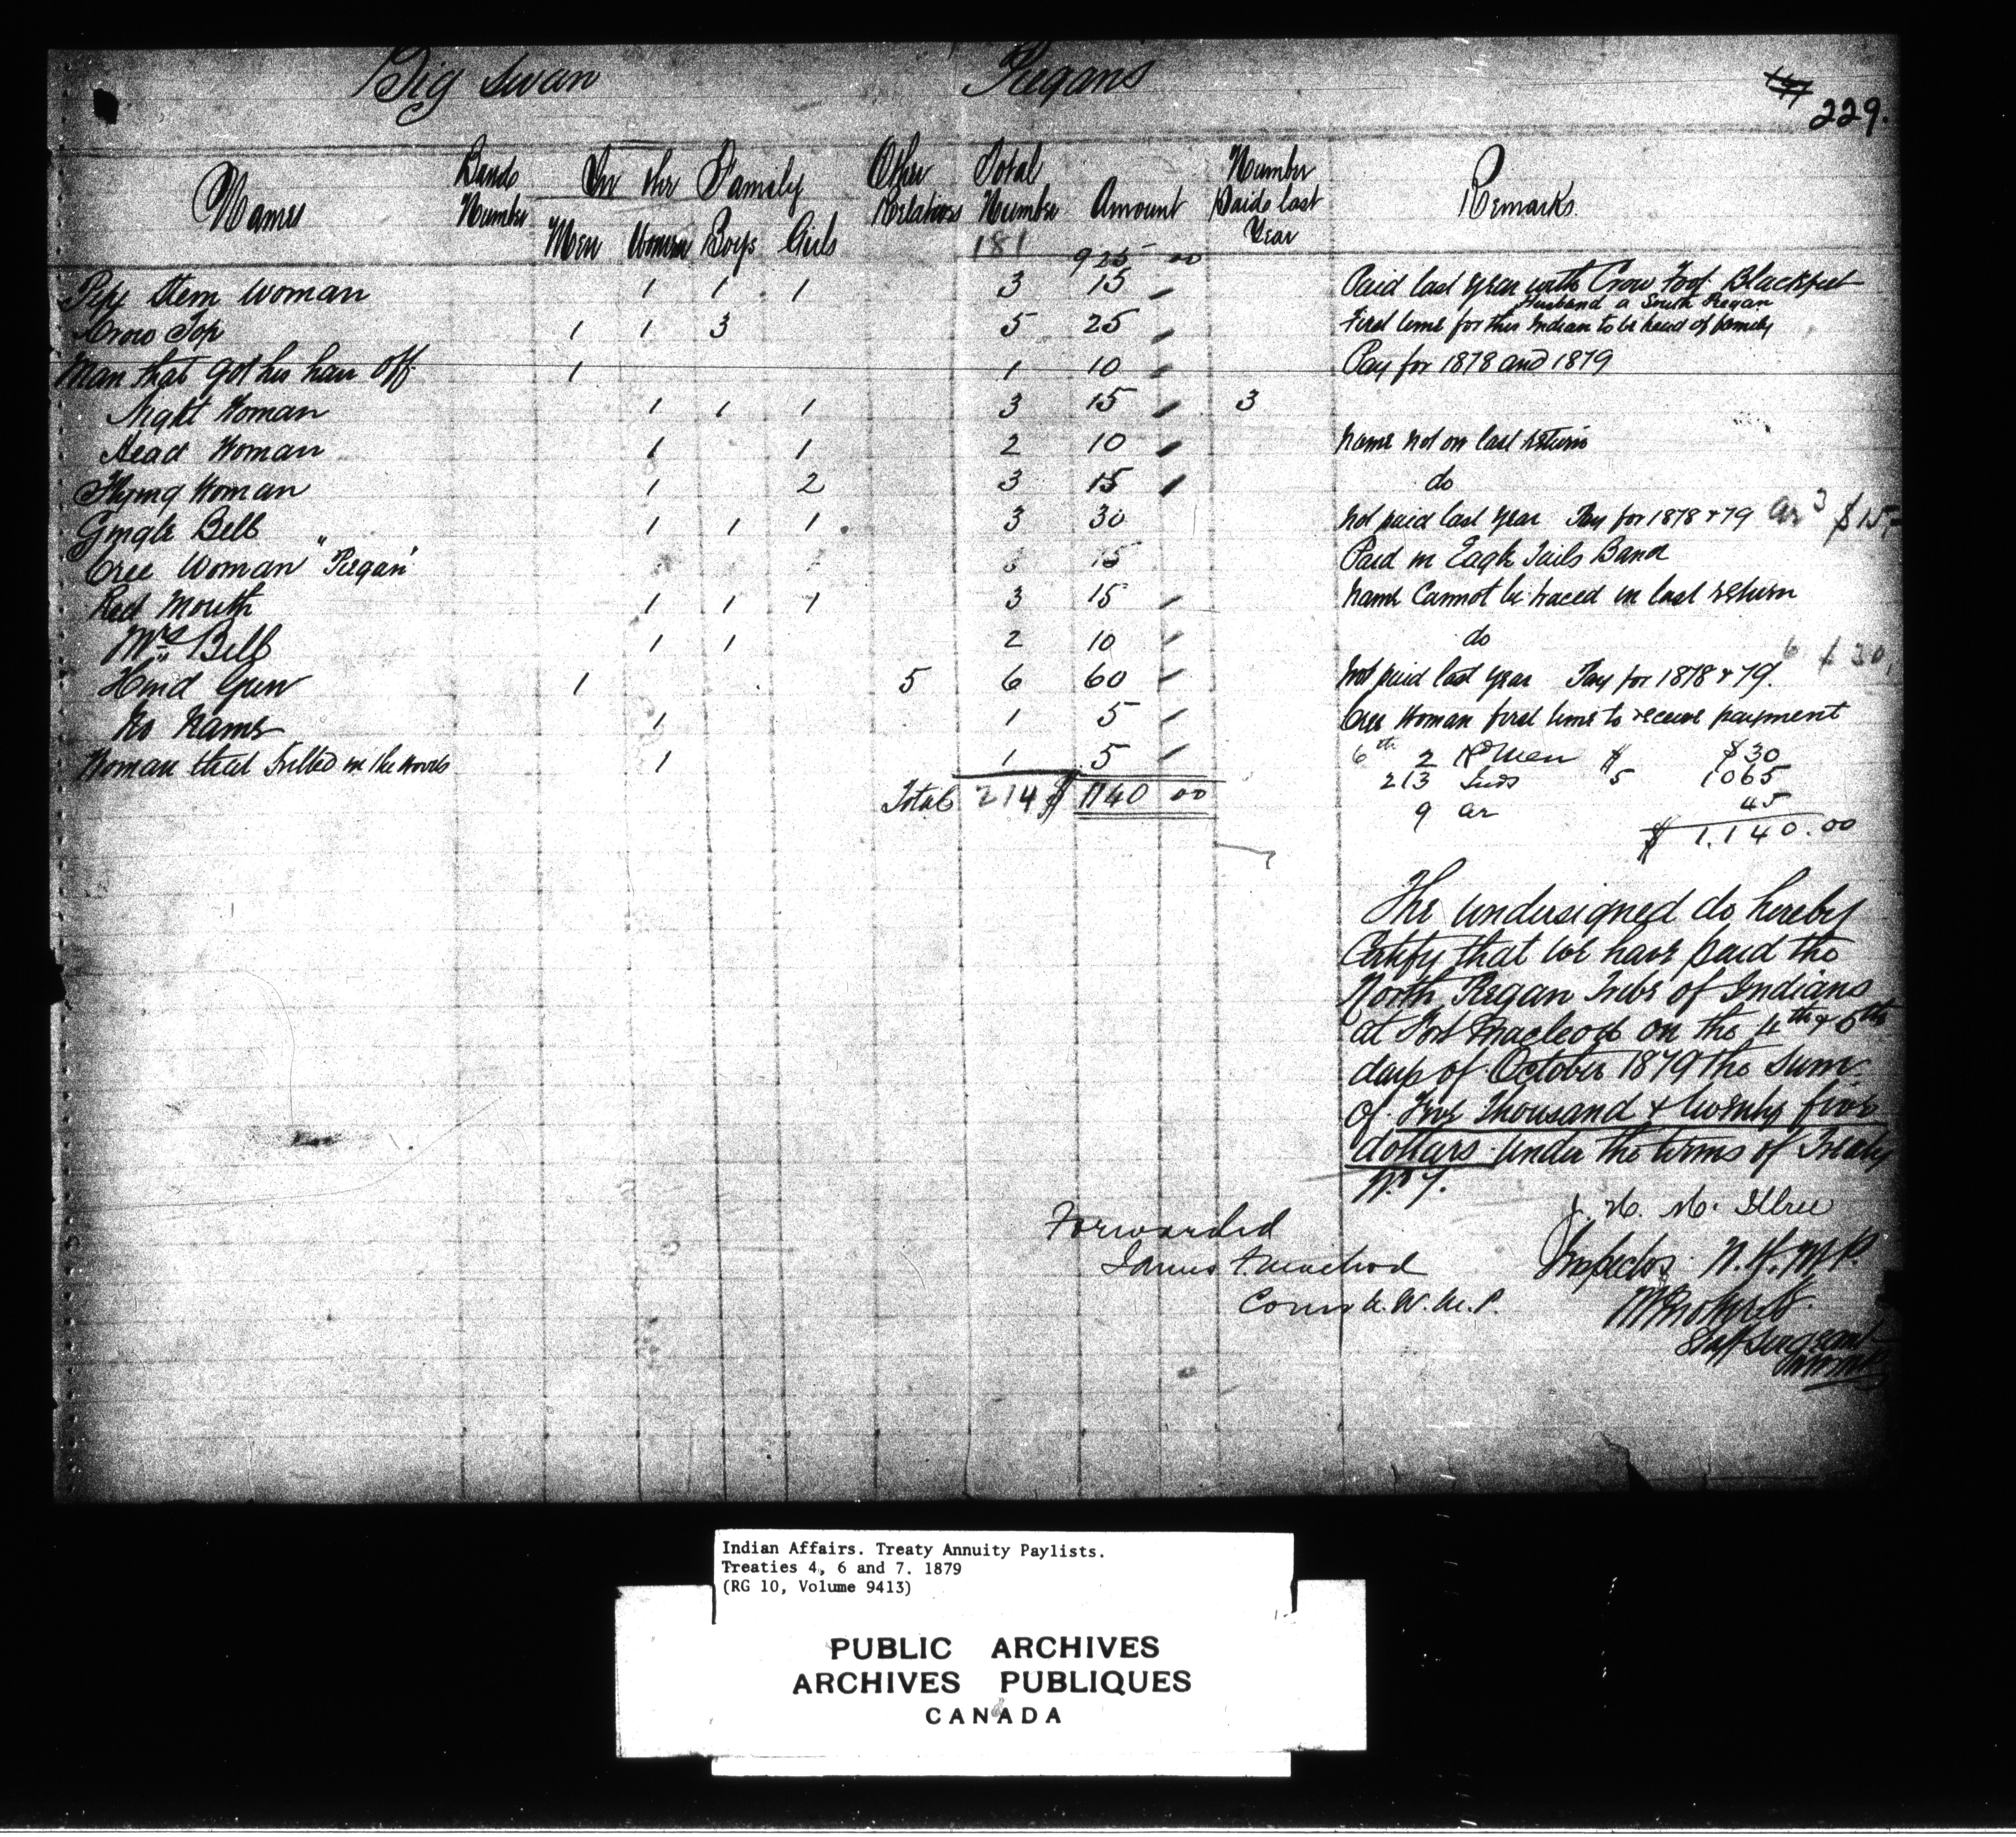 Big Swan Piegans
229.
Names Band Number In the Family Men Women Boys Girls Other Relatives Total Number Amount Number Paid last Year Remarks
181 925 00
Pipe Stem Woman 1 1 1 3 15 Paid last year with Crow Foot Blackfeet
Husband a South Piegan
Crow Top 1 1 3 5 25 First time for this Indian to be head of family
Man that got his hair off 1 1 10 Pay for 1878 and 1879
Night Woman 1 1 1 3 15 3
Head Woman 1 1 2 10 Name not on last return
Flying Woman 1 2 3 15 do
Gingle Bell 1 1 1 3 30 Not paid last year Pay for 1878 & 79 ar 3 $15
Cree Woman "Piegan" 3 15 Paid in Eagle Tails Band
Red Mouth 1 1 1 3 15 Name Cannot be traced in last return
Mrs Bell 1 1 2 10 do
Hind Gun 1 5 6 60 Not paid last year Pay for 1878 & 79. 6 $30
No Name 1 1 5 Cree Woman first time to receive payment
Woman that killed in the woods 1 1 5
6th 2 Men $ $30
213 Inds 5 1065
Total 214 $ 1140 00
9 ar 45
$ 1,140.00
The undersigned do hereby
Certify that we have paid the
North Piegan Tribe of Indians
at Fort Macleod on the 4th & 6th
days of October 1879 the sum
of Five Thousand & twenty five
dollars under the terms of Treaty
No 7.
Forwarded
James F. Macleod
Comr N.W.M.P.
Inspector N.W.M.P.
Staff Sergeant
Indian Affairs. Treaty Annuity Paylists.
Treaties 4, 6 and 7. 1879
(RG 10, Volume 9413)
PUBLIC ARCHIVES
ARCHIVES PUBLIQUES
CANADA